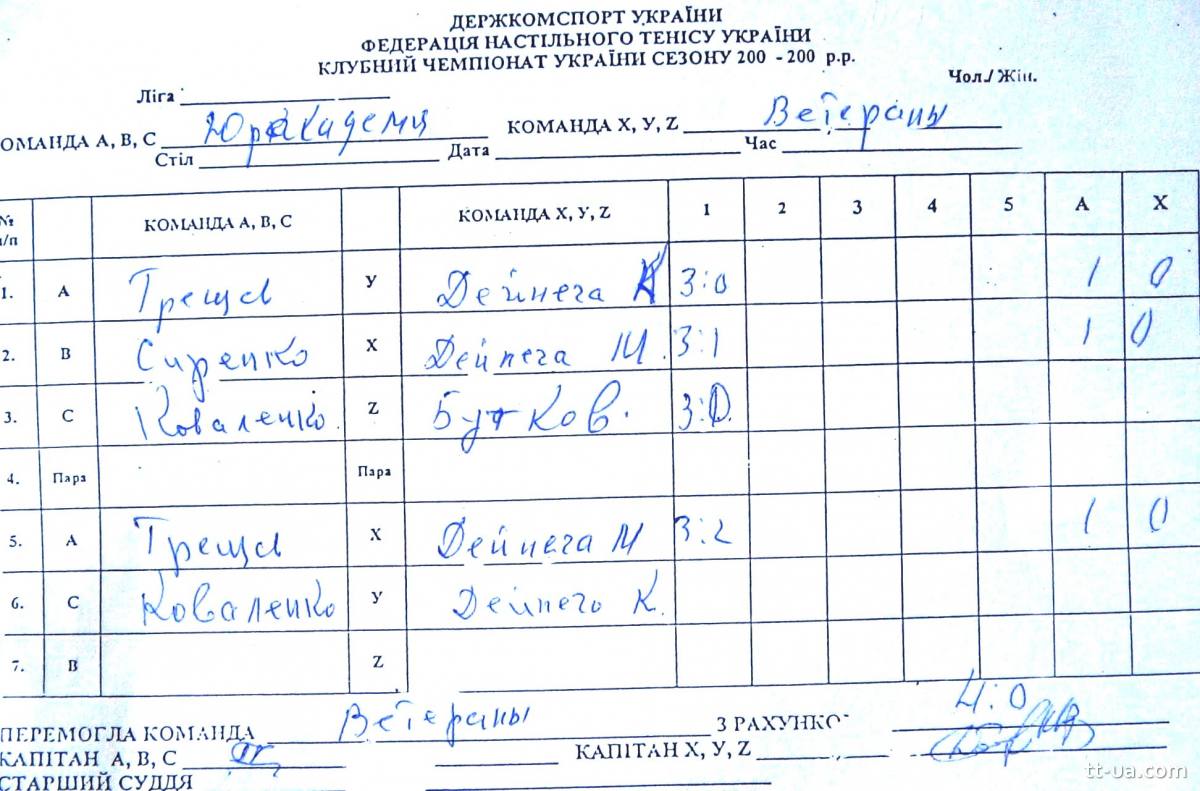 ДЕРЖКОМСПОРТ УКРАЇНИ
ФЕДЕРАЦІЯ НАСТІЛЬНОГО ТЕНІСУ УКРАЇНИ
КЛУБНИЙ ЧЕМПІОНАТ УКРАЇНИ СЕЗОНУ 200 - 200 р.р.
Чол./ Жін.
Ліга
ОМАНДА А, В, С Юракадемия КОМАНДА X, У, Z Ветераны
Стіл Дата Час
№ п/п КОМАНДА А, В, С КОМАНДА X, У, Z 1 2 3 4 5 А X
1. А Трещев У Дейнега К 3:0 1 0
2. В Сиренко X Дейнега М. 3:1 1 0
3. С Коваленко Z Бутков. 3:0
4. Пара Пара
5. А Трещев X Дейнега М 3:2 1 0
6. С Коваленко У Дейнега К.
7. В Z
ПЕРЕМОГЛА КОМАНДА Ветераны З РАХУНКО 4:0
КАПІТАН А, В, С КАПІТАН X, У, Z
СТАРШИЙ СУДДЯ
tt-ua.com